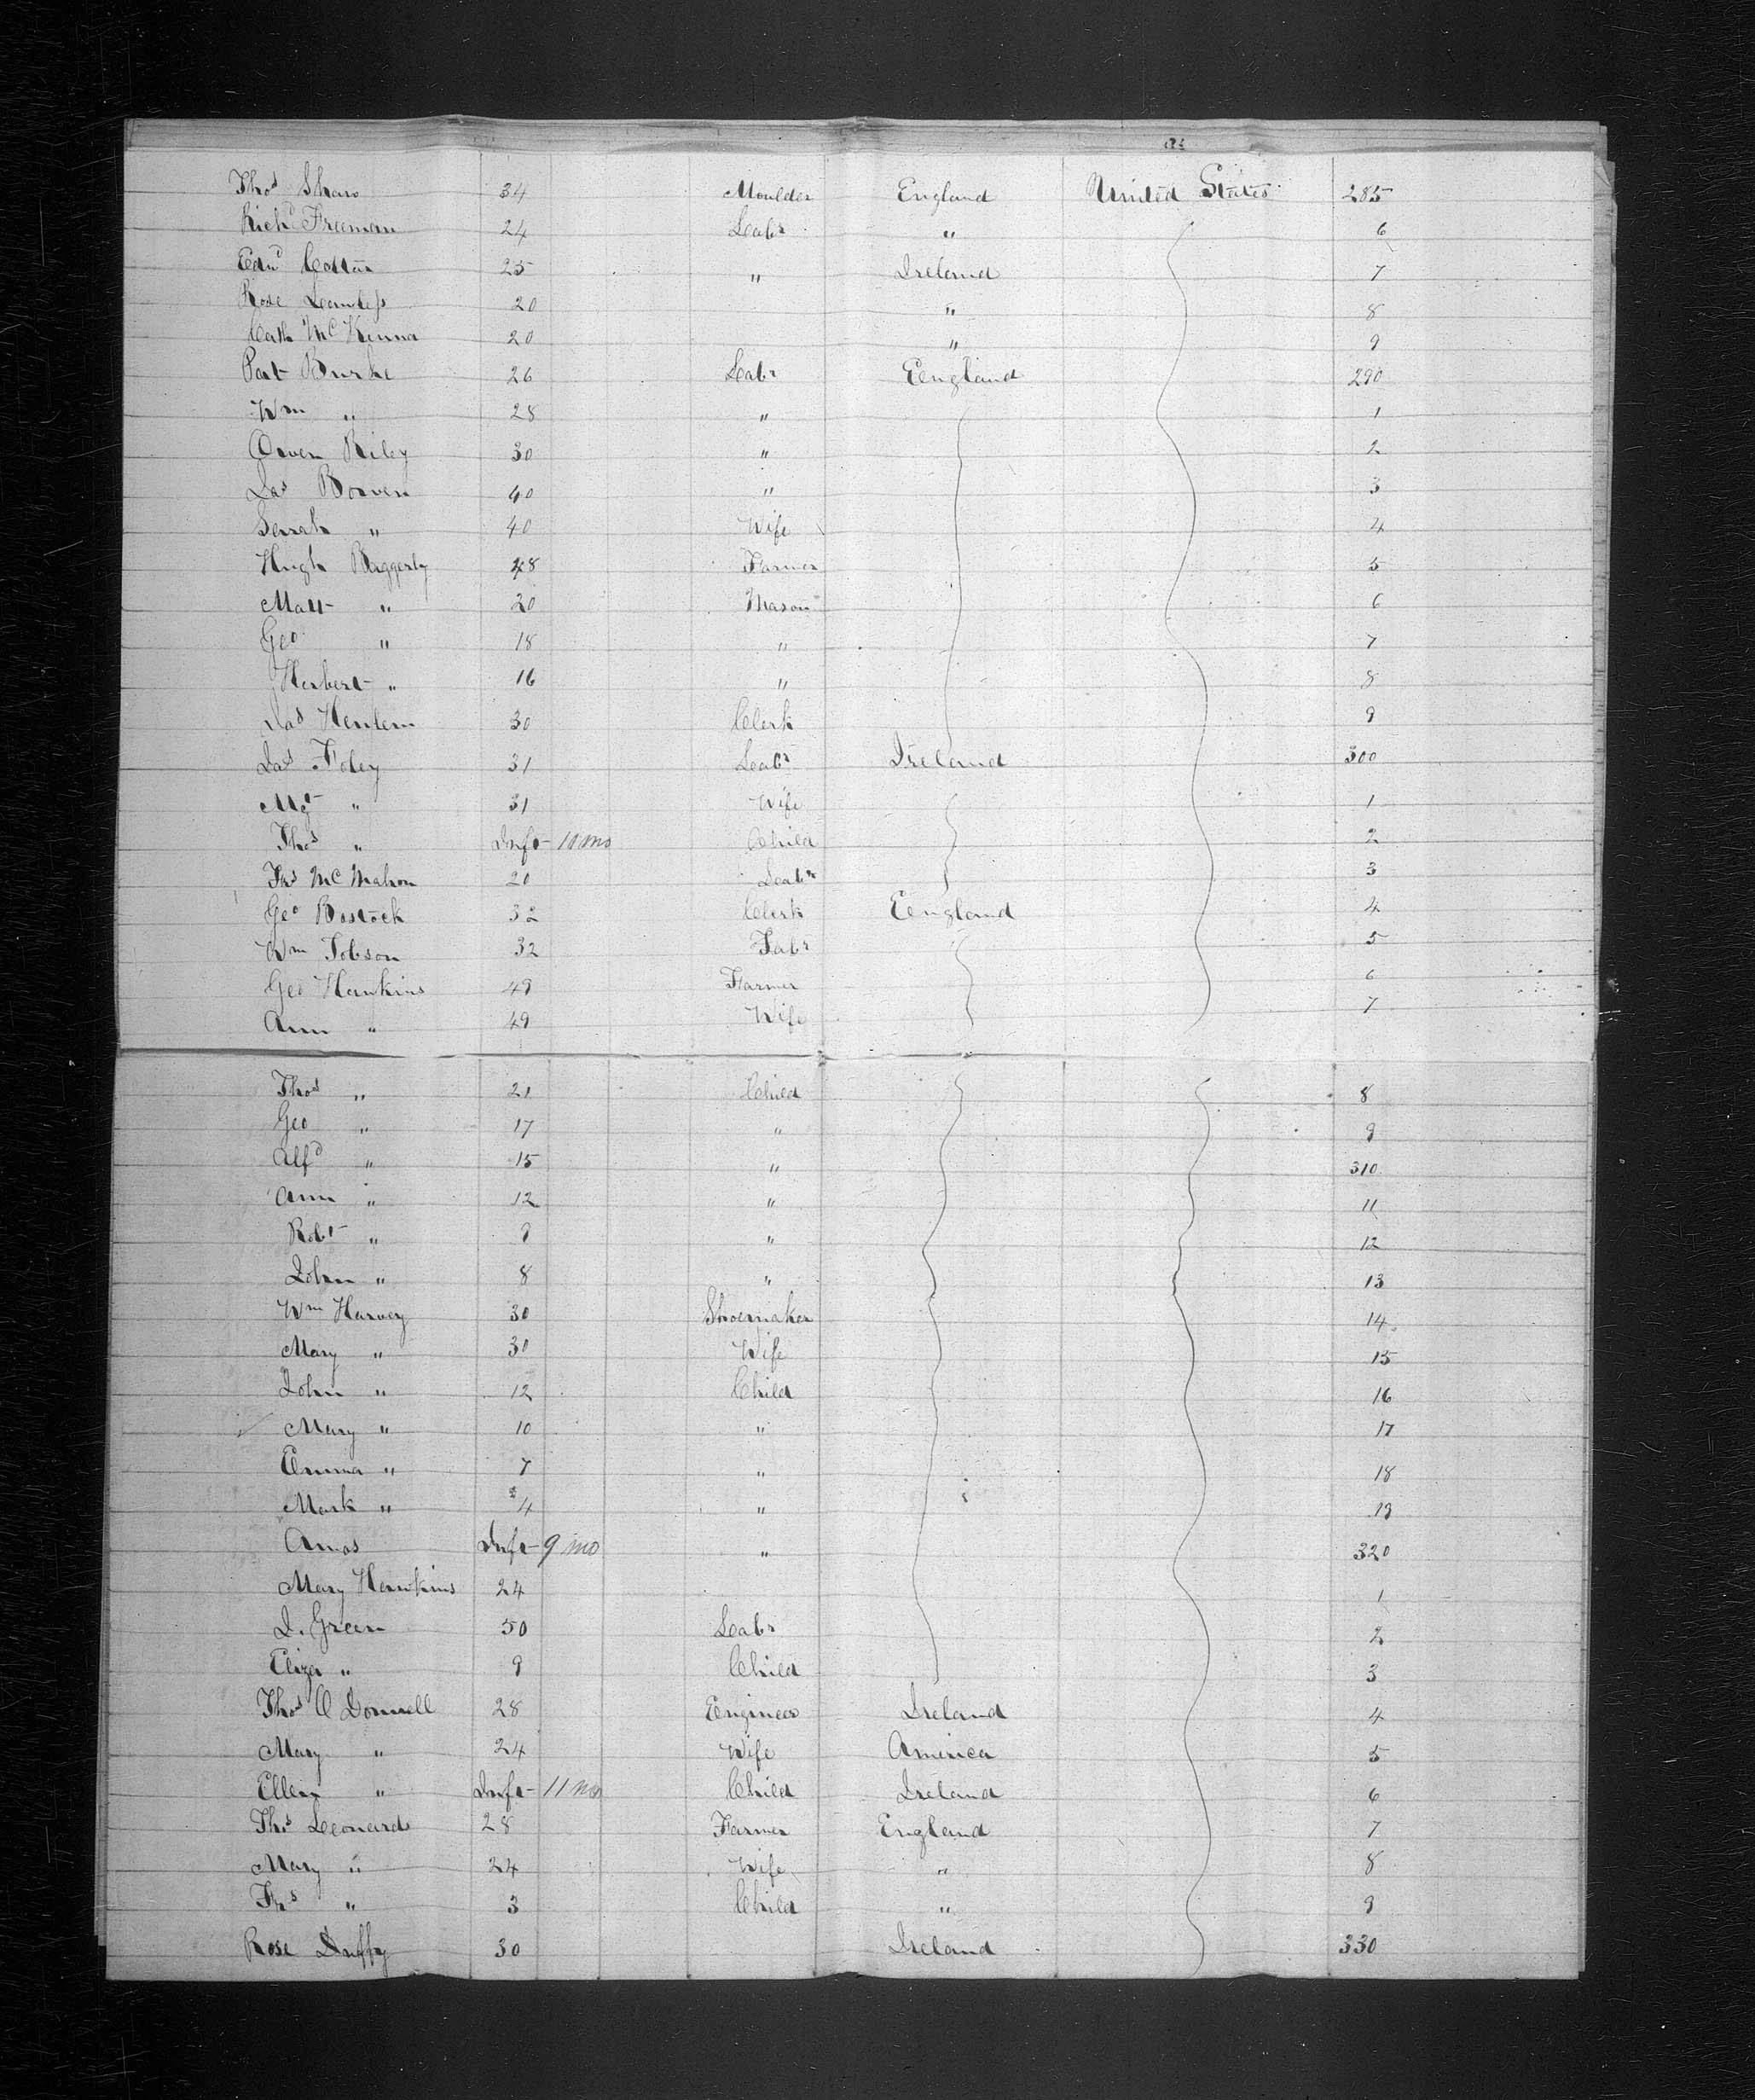 Thos Shaw 34 Moulder England United States 285
Richd Freeman 24 Labr " 6
Edwd Cottar 25 " Ireland 7
Rose 20 " 8
Cath McKenna 20 " 9
Pat Burke 26 Labr England 290
Wm " 28 " 1
Owen Riley 30 " 2
Jas Bowen 40 " 3
Sarah " 40 Wife 4
Hugh Baggerly 48 Farmer 5
Matt " 20 Mason 6
Geo " 18 " 7
Herbert " 16 " 8
Jas 30 Clerk 9
Jas Foley 31 Labr Ireland 300
Mgt " 31 Wife 1
Thos " Inft 10 mo Child 2
Fas McMahon 20 Labr 3
Geo Bostock 32 Clerk England 4
Wm Jobson 32 Labr 5
Geo Hawkins 49 Farmer 6
Ann " 49 Wife 7
Thos " 21 Child 8
Geo " 17 " 9
Alfd " 15 " 310
Ann " 12 " 11
Robt " 9 " 12
John " 8 " 13
Wm Harvey 30 Shoemaker 14
Mary " 30 Wife 15
John " 12 Child 16
Mary " 10 " 17
Emma " 7 " 18
Mark " 4 " 19
Amos Inft 9 mo " 320
Mary Hawkins 24 1
J. Green 50 Labr 2
Eliza " 9 Child 3
Thos O Donnell 28 Engineer Ireland 4
Mary " 24 Wife America 5
Ellen " Inft 11 mo Child Ireland 6
Thos Leonard 28 Farmer England 7
Mary " 24 Wife " 8
Fhs " 3 Child " 9
Rose Duffy 30 Ireland 330